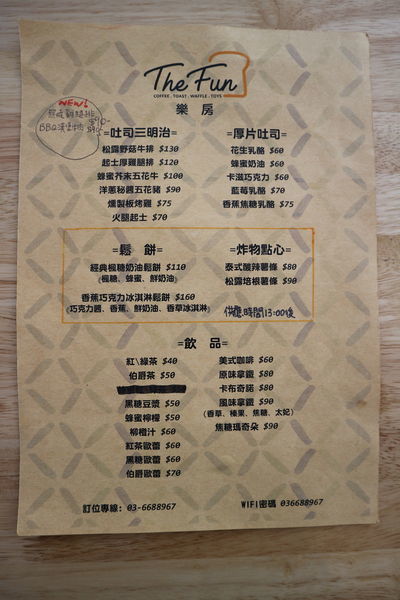 The Fun
COFFEE . TOAST . WAFFLE . TOYS
樂房
NEW!
$90-
BBQ漢堡排 $95
=吐司三明治=
松露野菇牛排 $130
起士厚雞腿排 $120
蜂蜜芥末五花牛 $100
洋蔥秘醬五花豬 $90
燻製板烤雞 $75
火腿起士 $70
=厚片吐司=
花生乳酪 $60
蜂蜜奶油 $60
卡滋巧克力 $60
藍莓乳酪 $70
香蕉焦糖乳酪 $75
=鬆 餅=
經典楓糖奶油鬆餅 $110
(楓糖、蜂蜜、鮮奶油)
香蕉巧克力冰淇淋鬆餅 $160
(巧克力醬、香蕉、鮮奶油、香草冰淇淋)
=炸物點心=
泰式酸辣薯條 $80
松露培根薯條 $90
供應時間13:00後
=飲 品=
紅\綠茶 $40
伯爵茶 $50
黑糖豆漿 $50
蜂蜜檸檬 $50
柳橙汁 $60
紅茶歐蕾 $60
黑糖歐蕾 $60
伯爵歐蕾 $70
美式咖啡 $60
原味拿鐵 $80
卡布奇諾 $80
風味拿鐵 $90
(香草、榛果、焦糖、太妃)
焦糖瑪奇朵 $90
訂位專線: 03-6688967
WIFI密碼 036688967